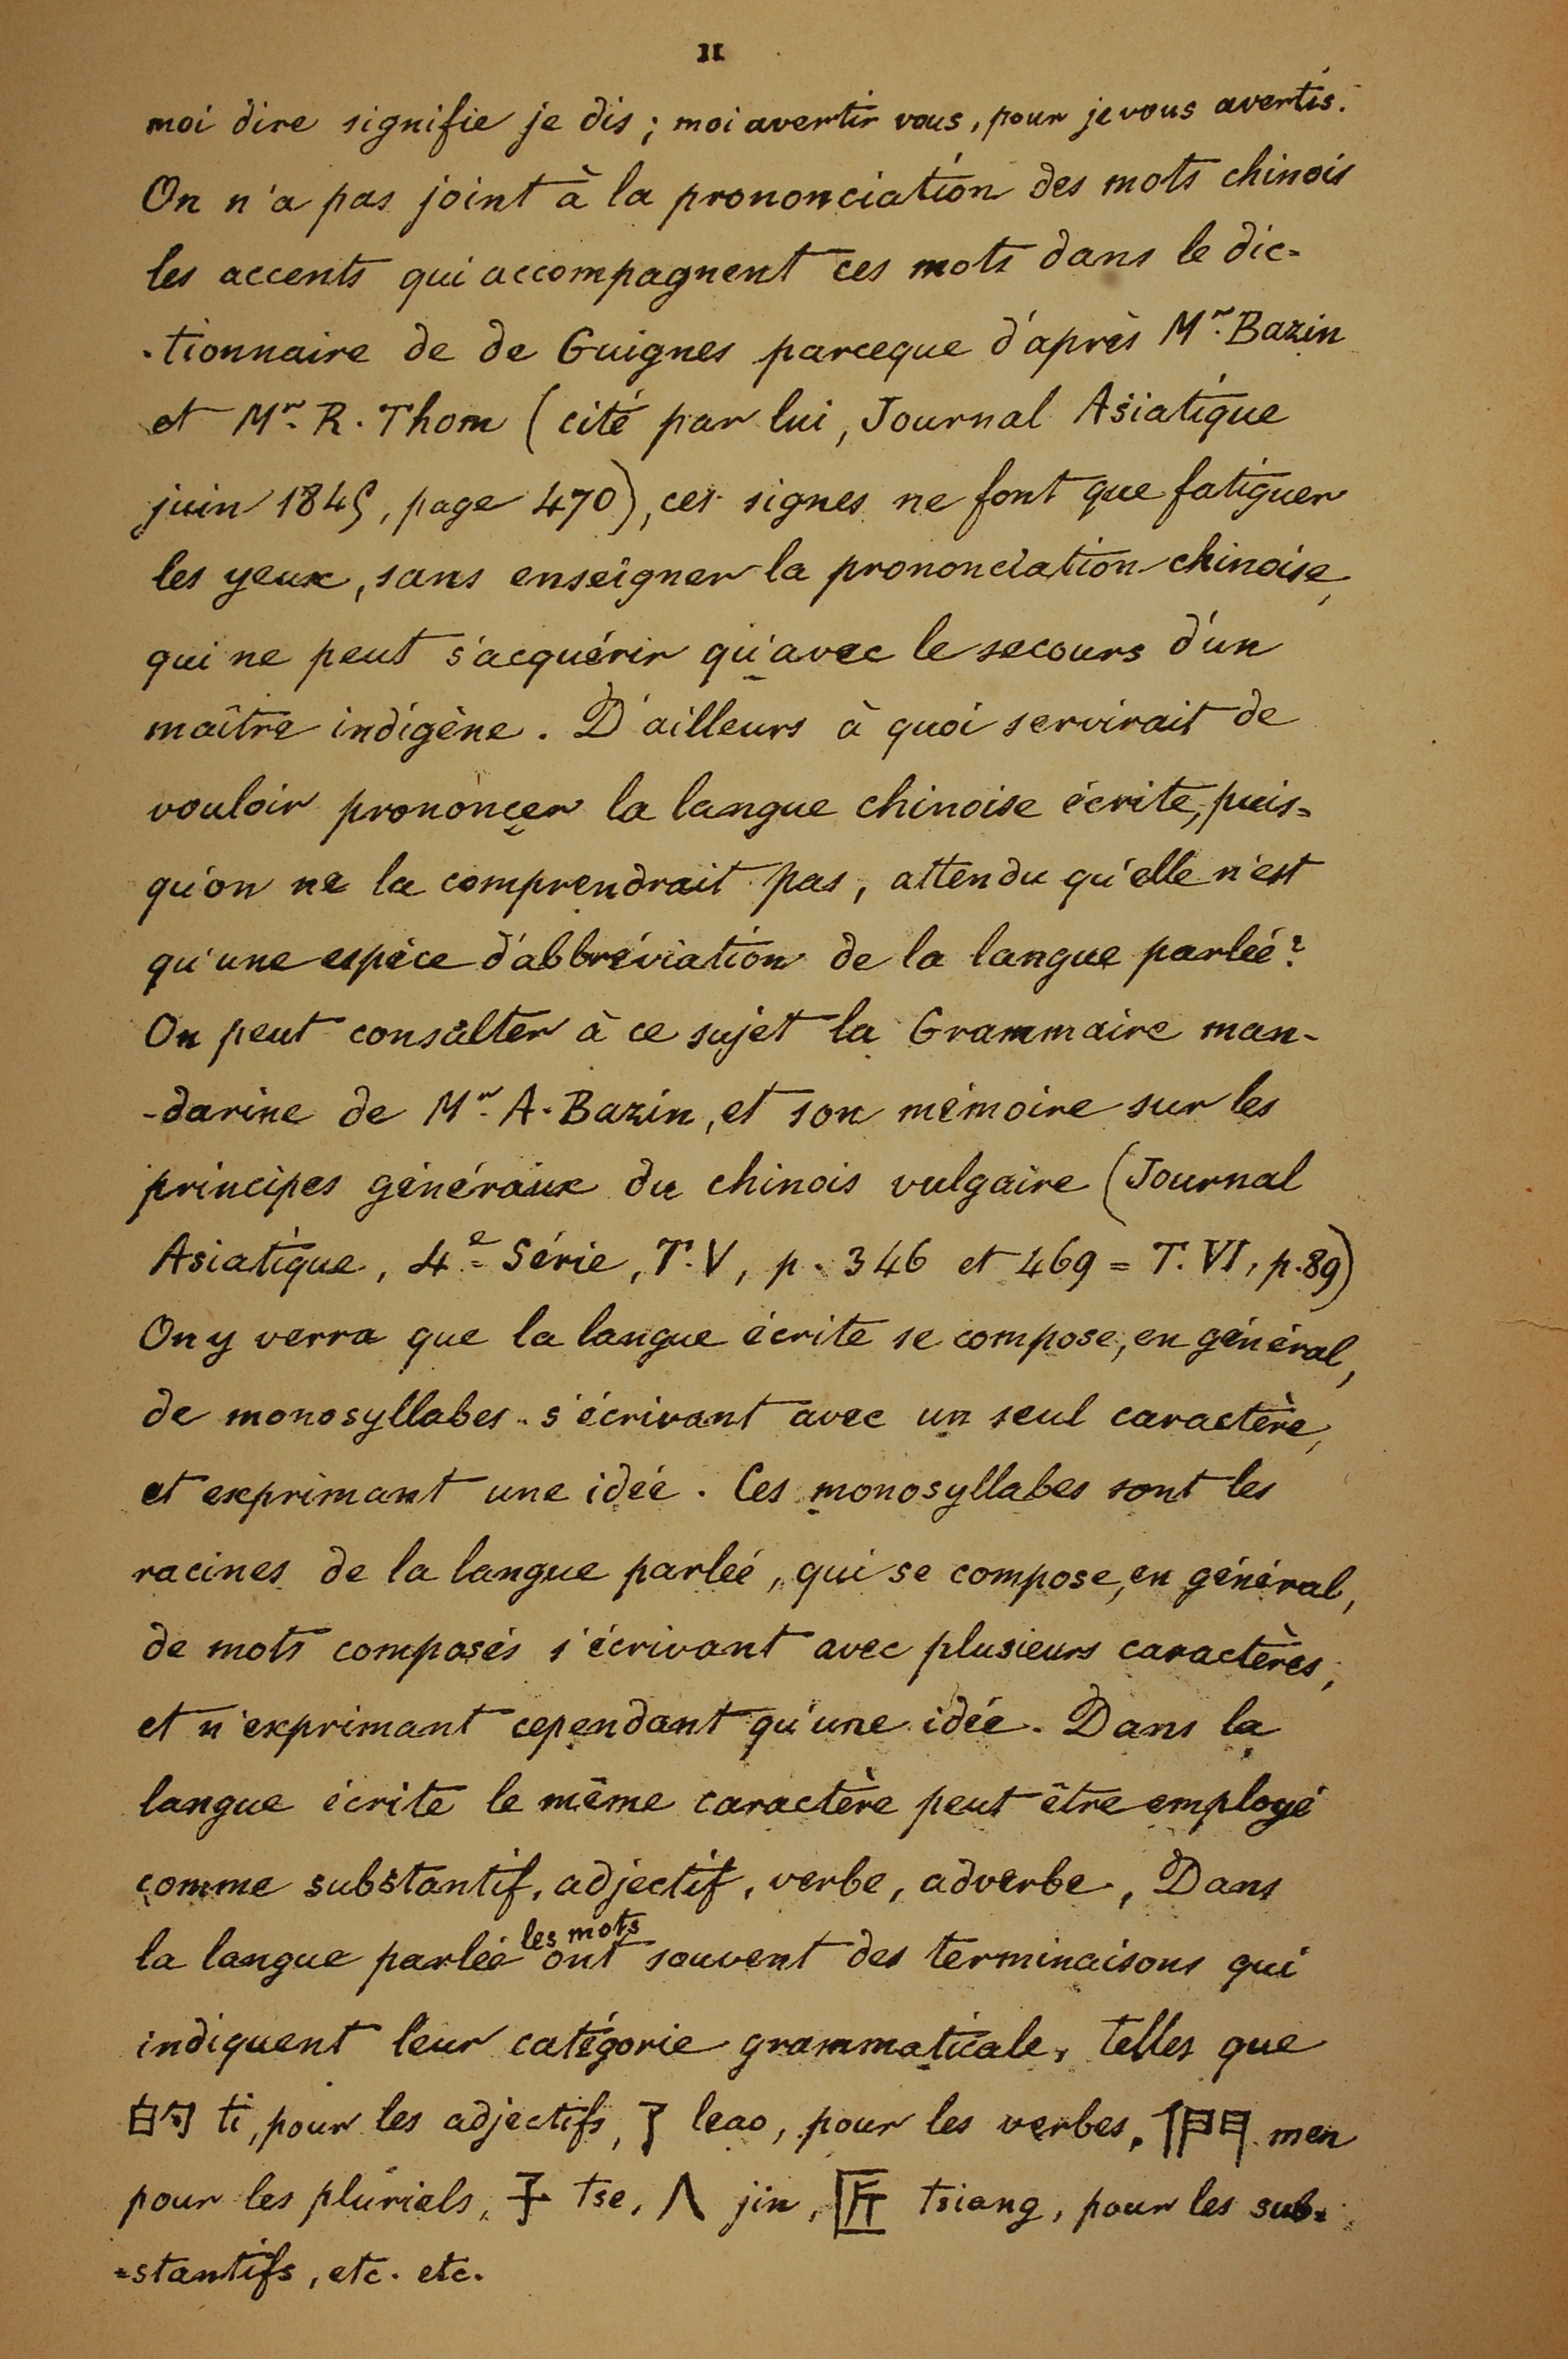 II
moi dire signifie je dis ; moi avertir vous, pour je vous avertis.
On n'a pas joint à la prononciation des mots chinois
les accents qui accompagnent ces mots dans le dic=
-tionnaire de de Guignes parceque d'après Mr. Bazin
et Mr. R. Thom (cité par lui, Journal Asiatique
juin 1845, page 470), ces signes ne font que fatiguer
les yeux, sans enseigner la prononciation chinoise,
qui ne peut s'acquérir qu'avec le secours d'un
maître indigène. D'ailleurs à quoi servirait de
vouloir prononcer la langue chinoise écrite, puis=
qu'on ne la comprendrait pas, attendu qu'elle n'est
qu'une espèce d'abbréviation de la langue parleé?
On peut consulter à ce sujet la Grammaire man-
-darine de Mr. A. Bazin, et son mémoire sur les
principes généraux du chinois vulgaire (Journal
Asiatique, 4e Série, T. V, p. 346 et 469 = T. VI, p. 89)
On y verra que la langue écrite se compose, en général,
de monosyllabes s'écrivant avec un seul caractère,
et exprimant une idée. Ces monosyllabes sont les
racines de la langue parleé, qui se compose, en général,
de mots composés s'écrivant avec plusieurs caractères,
et n'exprimant cependant qu'une idée. Dans la
langue écrite le même caractère peut être employé
comme substantif, adjectif, verbe, adverbe, Dans
la langue parleé les mots ont souvent des terminaisons qui
indiquent leur catégorie grammaticale, telles que
的 ti, pour les adjectifs, 了 leao, pour les verbes, 們 men
pour les pluriels, 子 tse, 人 jin, 匠 tsiang, pour les sub=
=stantifs, etc. etc.